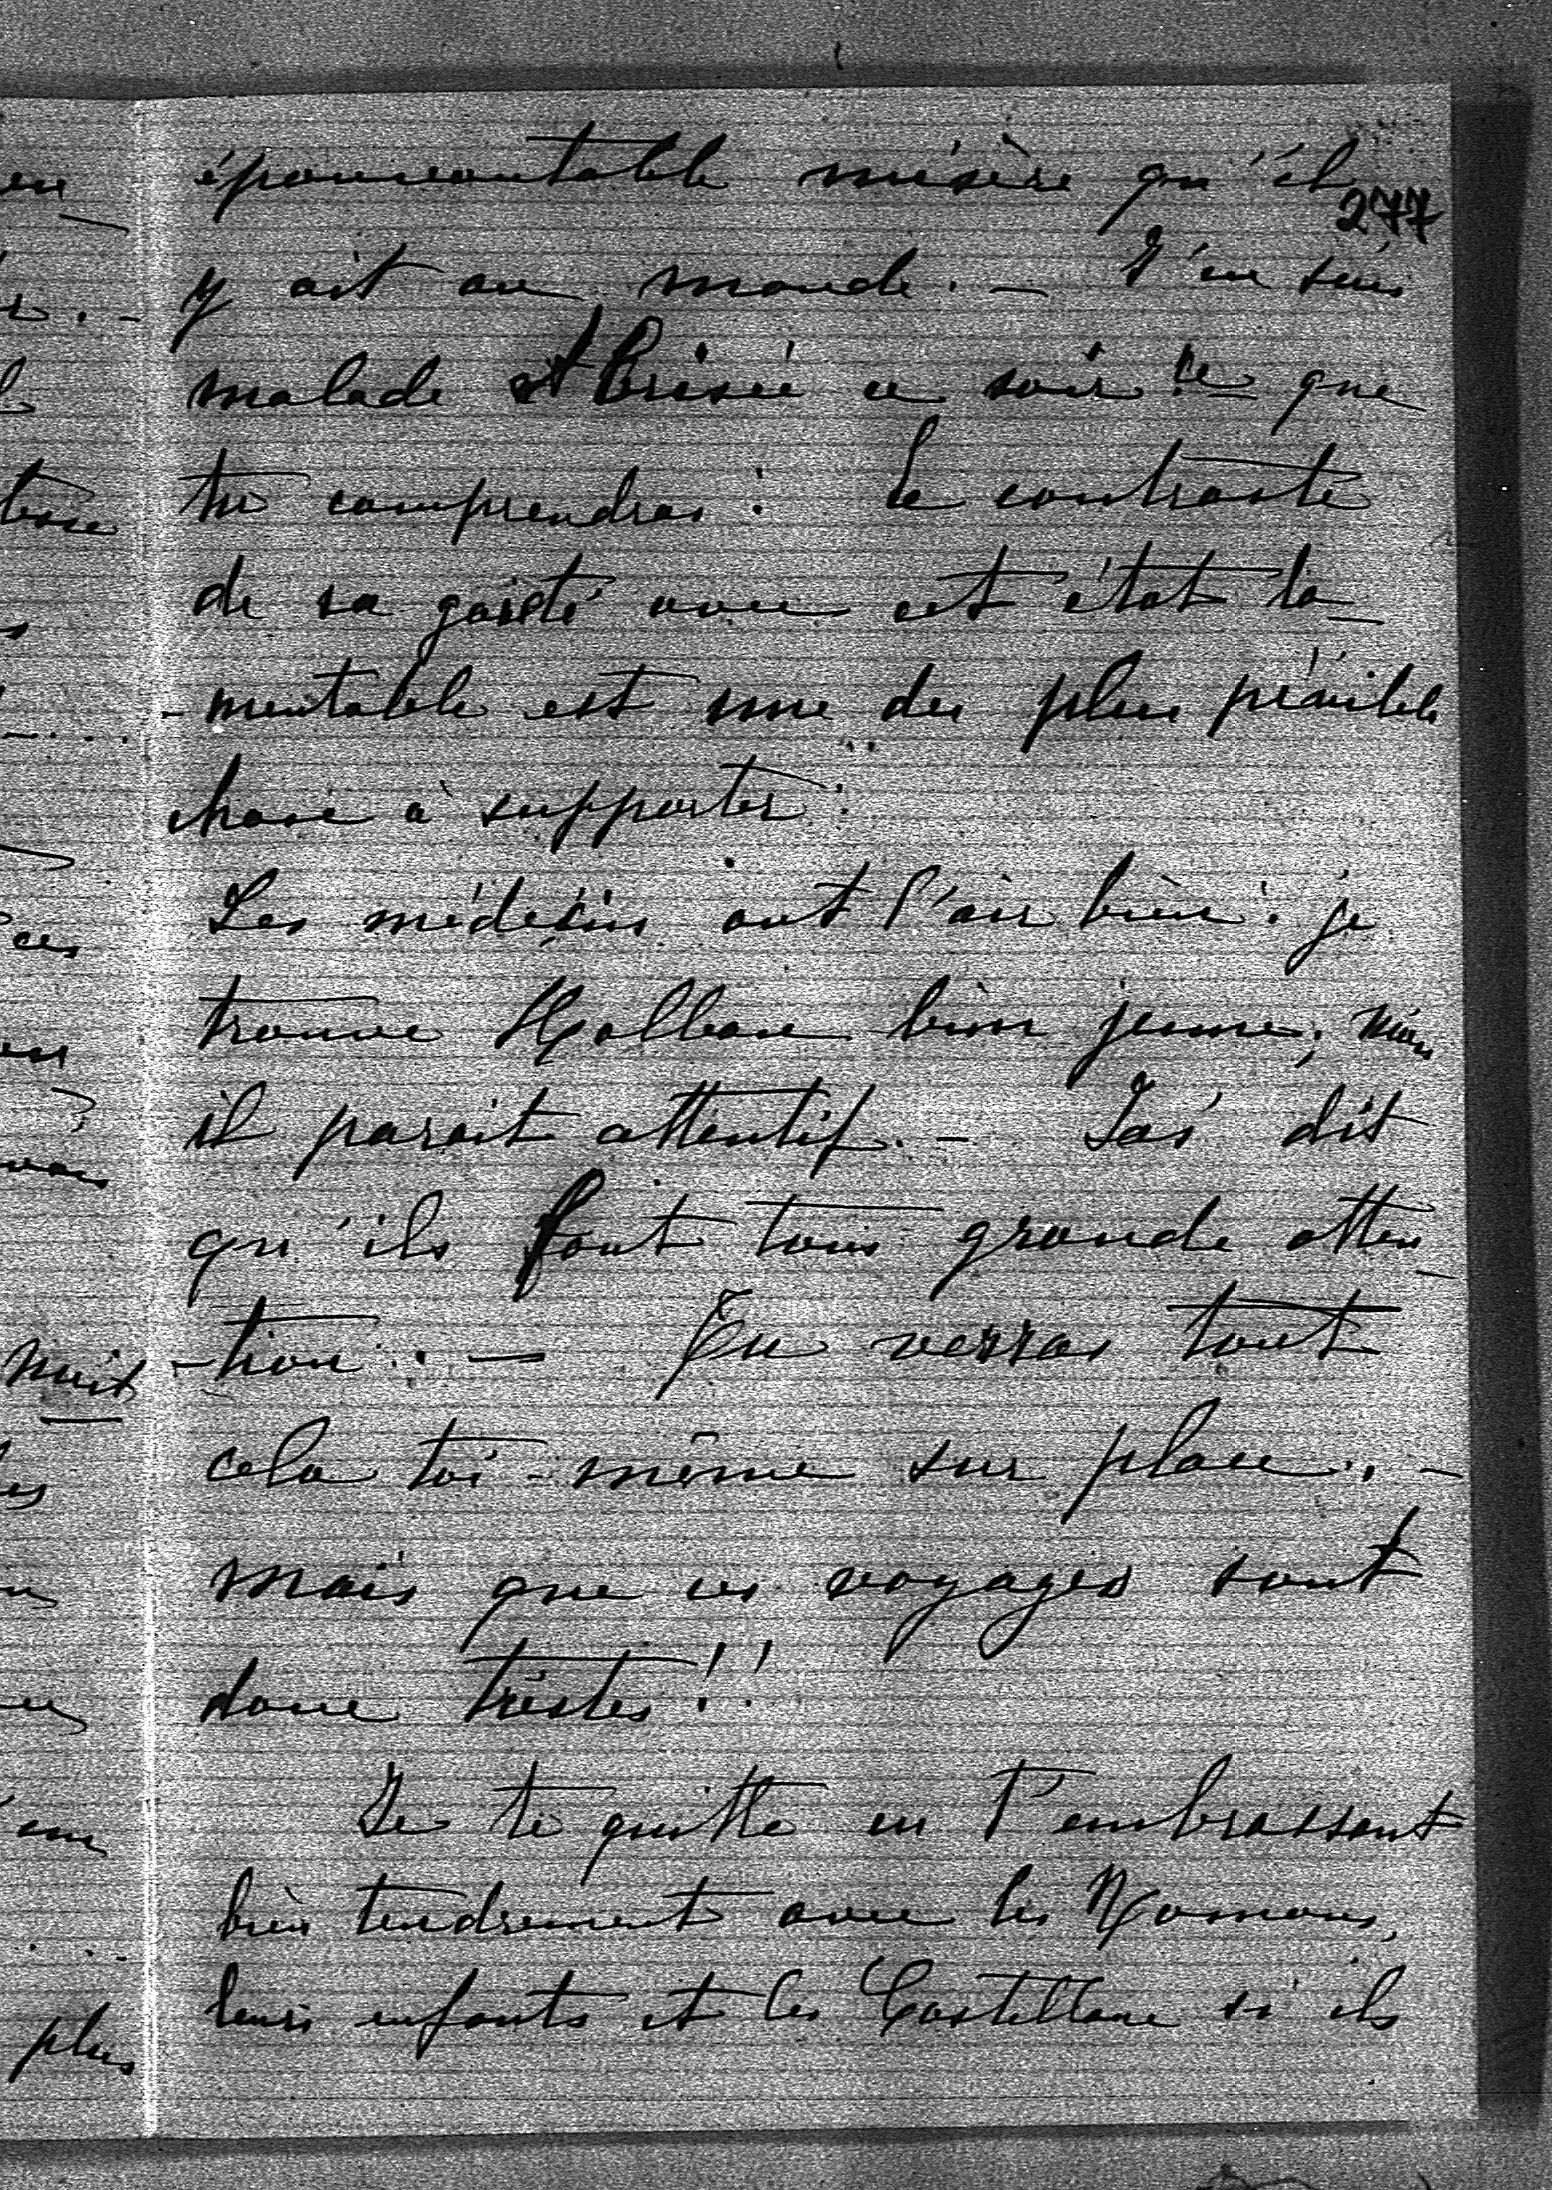 épouvantable misère qu'il
277
y ait au monde. - J'en suis
malade et brisée ce soir : ce que
tu comprendras : Le contraste
de sa gaieté avec cet état la-
-mentable est une des plus pénibles
chose à supporter :
Les médecins ont l'air bien : je
trouve bien jeune, mais
il parait attentif. - dit
qu'ils font tous grande atten-
-tion. - Tu verras tout
cela toi-même sur place. -
mais que ces voyages sont
donc tristes !!
Je te quitte en t'embrassant
bien tendrement avec les
leurs enfants et les Castellane si ils
nuit
plus